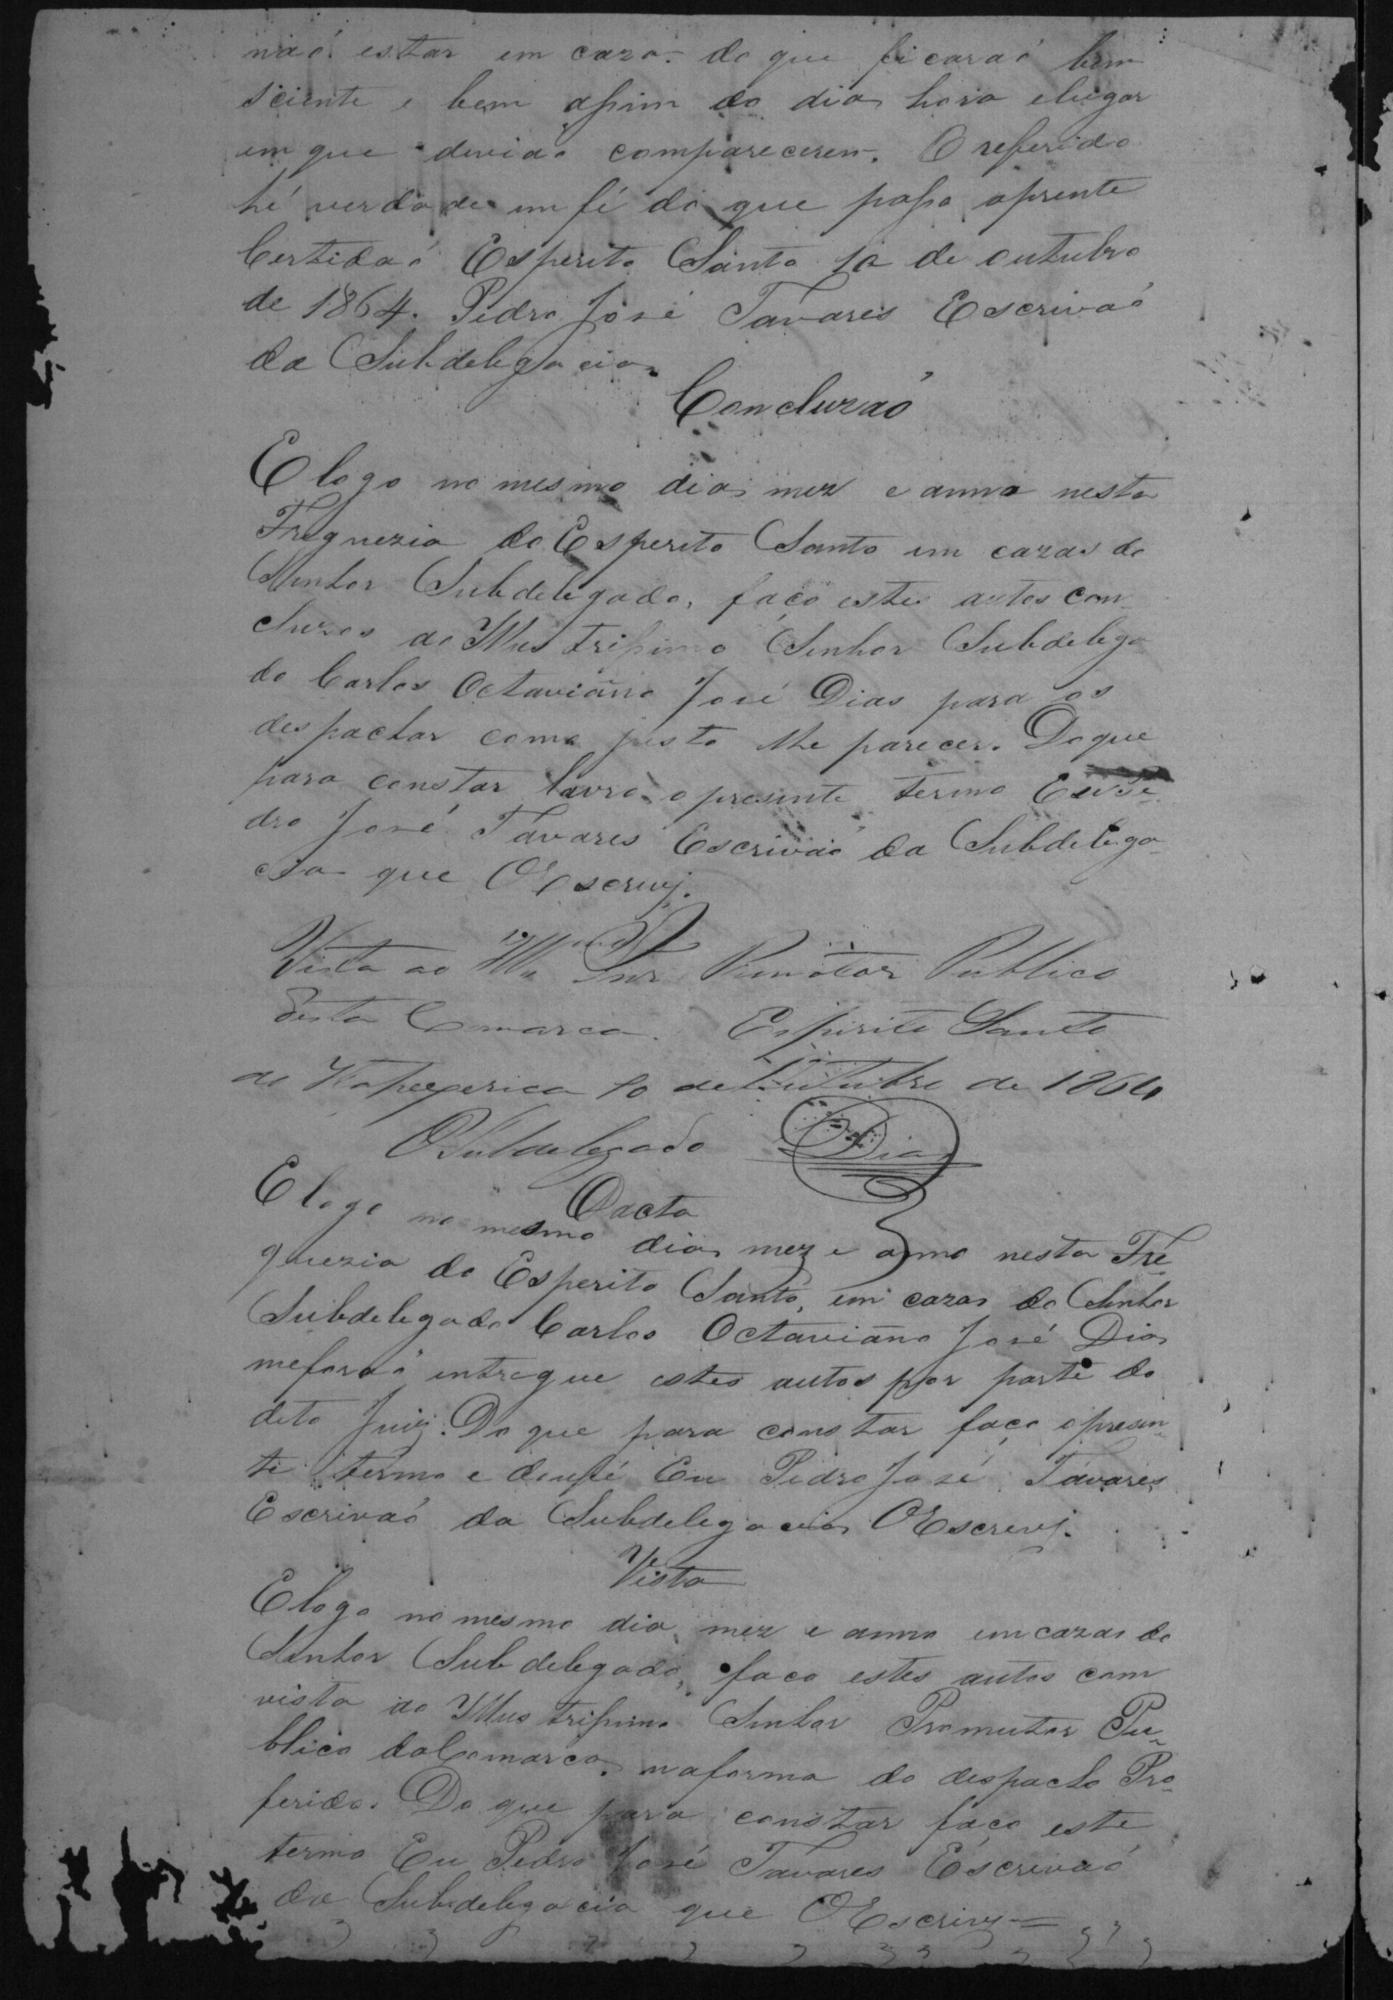 naó estar em caza. do que ficaraó bem
sciente e bem assim do dia hora elugar
em que deviaõ comparecerem. O referido
hé verdade em fé do que passo aprente
Certidaó Esperito Santo 10 de outubro
de 1864. Pedro José Tavares Escrivaó
da Subdelegacia
Concluzaó
E logo no mesmo dia mez e anno nesta
Freguezia do Esperito Santo em cazas do
Senhor Subdelegado, faço estes autos con
cluzos ao Illustrissimo Senhor Subdelega
do Carlos Octaviano José Dias para os
despachar como justo lhe parecer. Do que
para constar lavro o presente termo Eu Pe
dro José Tavares Escrivaó da Subdelega
cia que OEscrevj.
Vista ao Illmo Snr Promotor Publico
desta Comarca. Espirito Santo
de Itapecerica 10 de Outubro de 1864
OSubdelegado Dias
Dacta
E logo no mesmo dia mez e anno nesta Fre
guezia do Esperito Santo, em cazas do Senhor
Subdelegado Carlos Octaviano José Dias
meforaó entregue estes autos por parte do
dito Juiz. Do que para constar faço opresen
te termo e deufé Eu Pedro José Tavares
Escrivaó da Subdelegacia OEscrevj.
Vista
E logo no mesmo dia mez e anno em cazas do
Senhor Subdelegado, faco estes autos com
vista ao Illustrissimo Senhor Promutor Pu
blico daComarca, naforma do despacho Pro
ferido. Do que para constar faço este
termo Eu Pedro José Tavares Escrivaó
da Subdelegacia que OEscrivy=